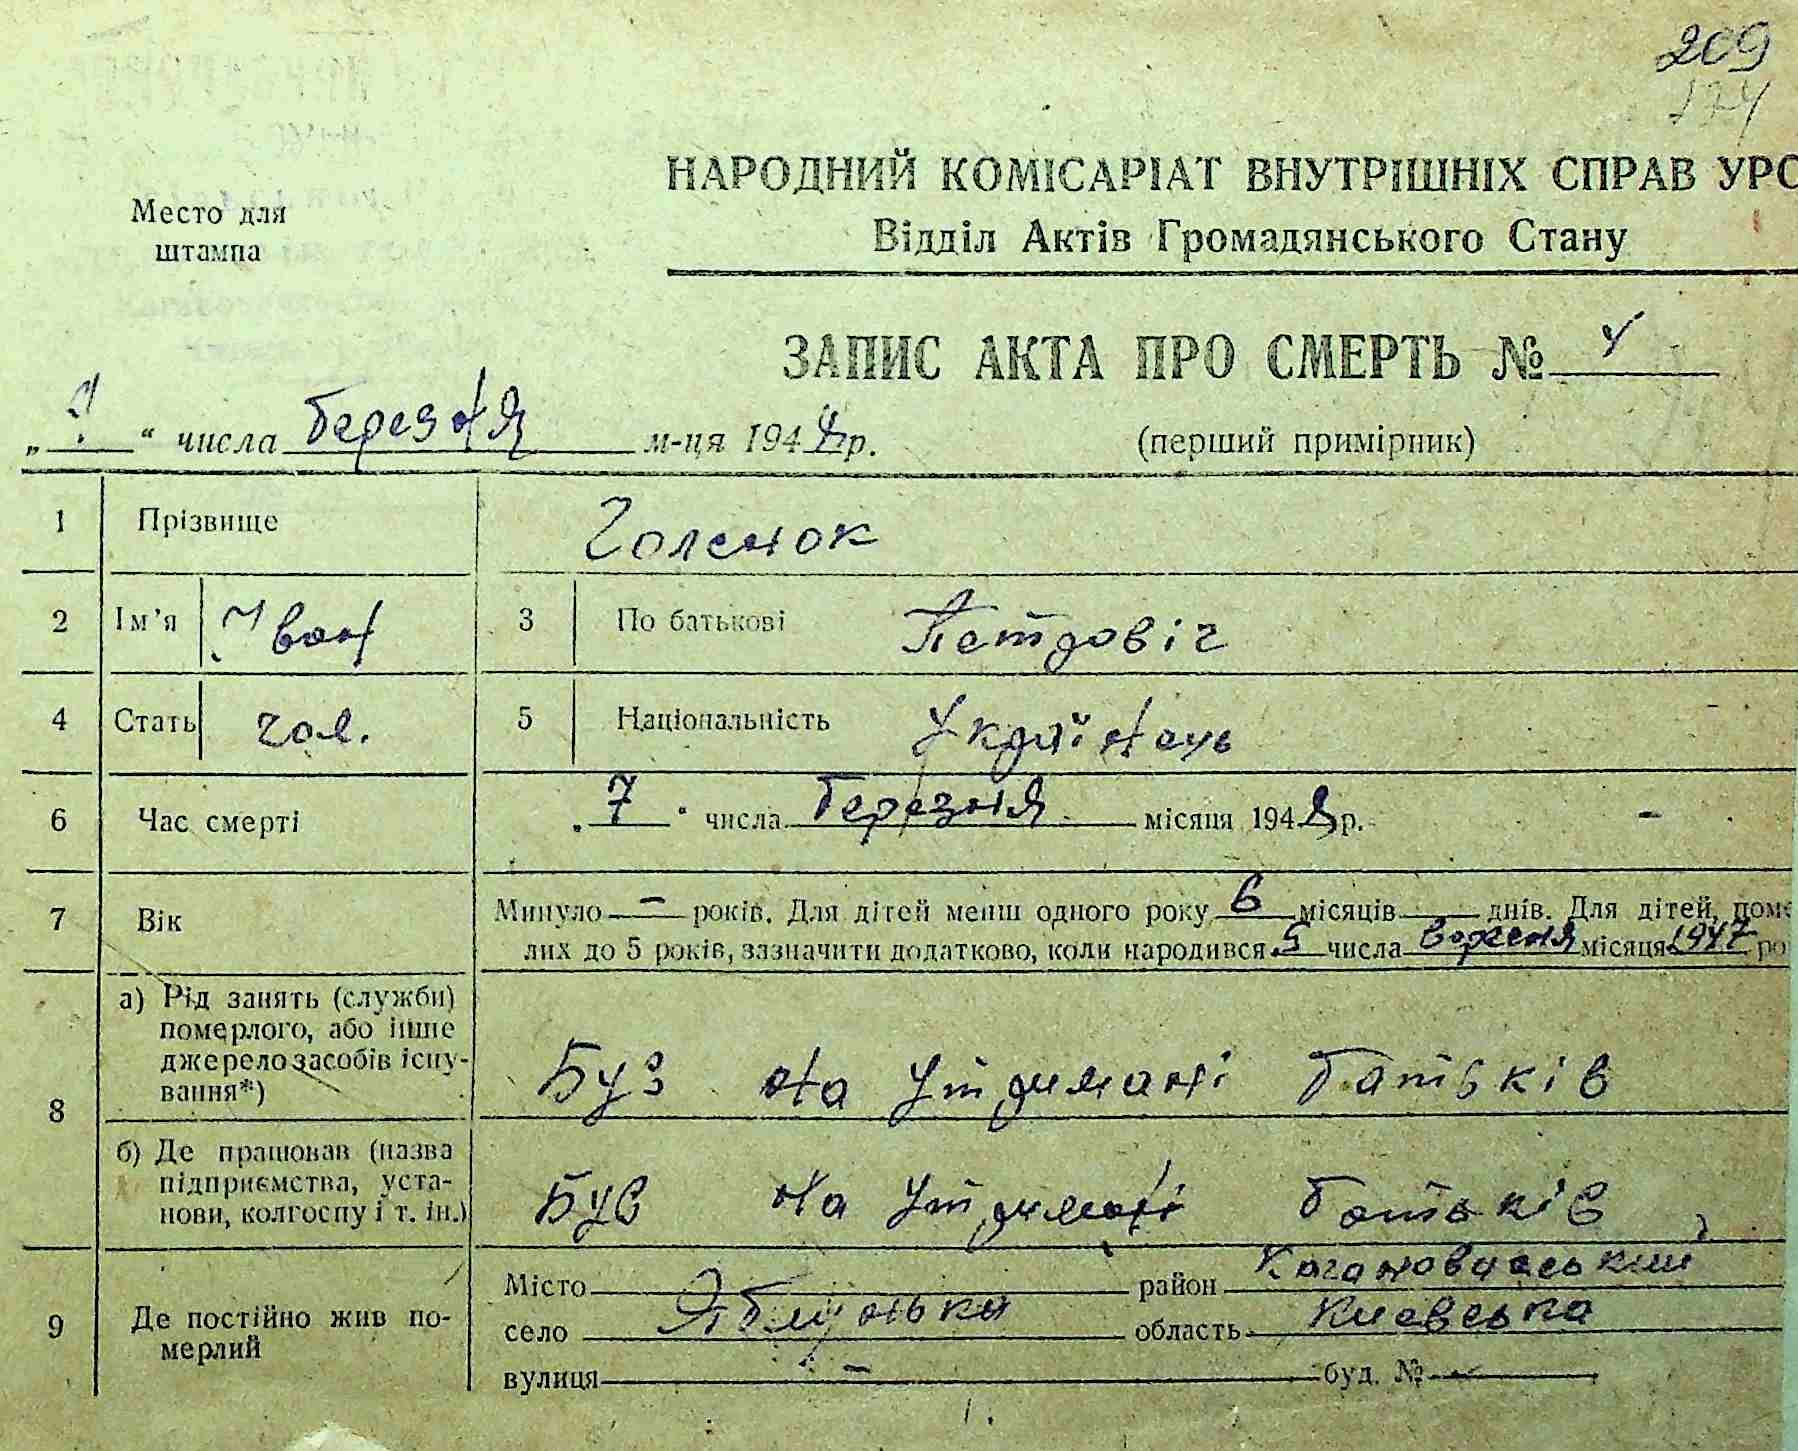 209
174
НАРОДНИЙ КОМІСАРІАТ ВНУТРІШНІХ СПРАВ УРС
Відділ Актів Громадянського Стану
Место для
штампа
ЗАПИС АКТА ПРО СМЕРТЬ № 4
„ “ числа березня м-ця 1948 р.
(перший примірник)
1 Прізвище Чоленок
2 Ім'я Іван 3 По батькові Петровіч
4 Стать чол. 5 Національність Українець
6 Час смерті „ 7 “ числа березня місяця 1948 р. -
7 Вік Минуло - років. Для дітей менш одного року 6 місяців днів. Для дітей, поме
лих до 5 років, зазначити додатково, коли народився 5 числа вересня місяця 1947 ро
8 а) Рід занять (служби)
померлого, або інше
джерело засобів існу-
вання*)
Був на утримані батьків
б) Де працював (назва
підприємства, уста-
нови, колгоспу і т. ін.)
Був на утримані батьків
9 Де постійно жив по-
мерлий
Місто район Кагановичський
село Яблунька область Киевська
вулиця - буд. № -